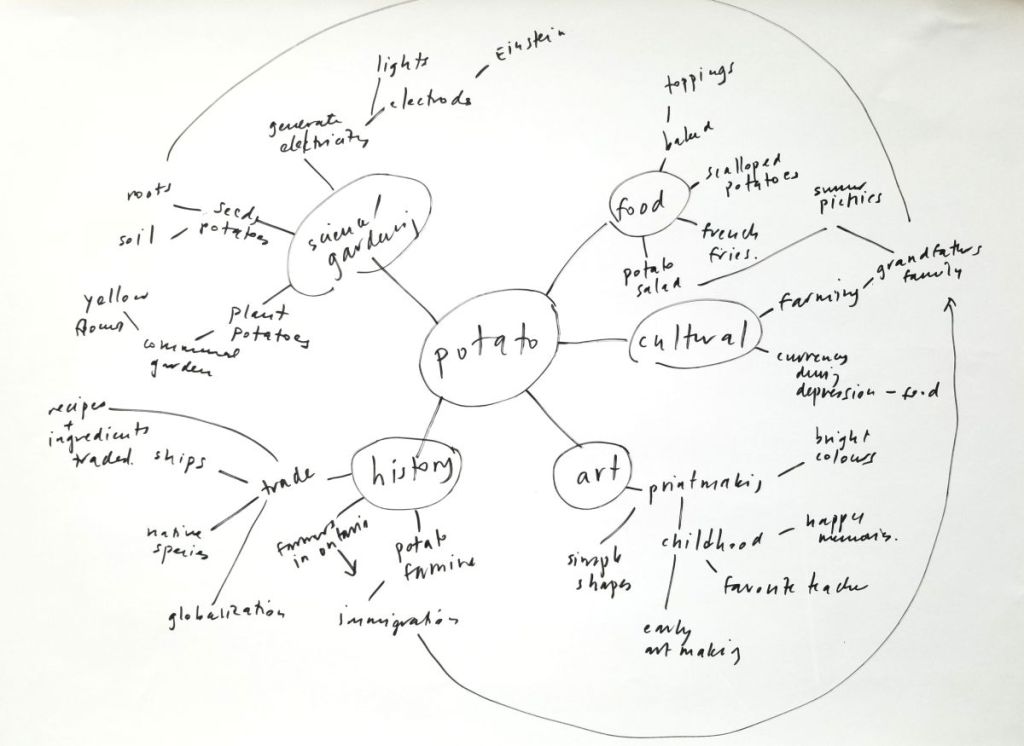 lights
Einstein
electrode
generate
elektricity
roots
seeds
potatoes
soil
science/
gardening
yellow
communal
garden
plant
potatoes
toppings
baked
food
scalloped
potatoes
french
fries.
potato
salad
picnics
grandfathers
family
farming
potato
cultural
currency
during
depression - food
recipes
+
ingredients
traded.
ships
trade
history
native
species
globalization
farmers
in ontario
potato
famine
immigration
art
printmaking
bright
colours
simple
shapes
childhood
happy
memories.
favorite teacher
early
art making